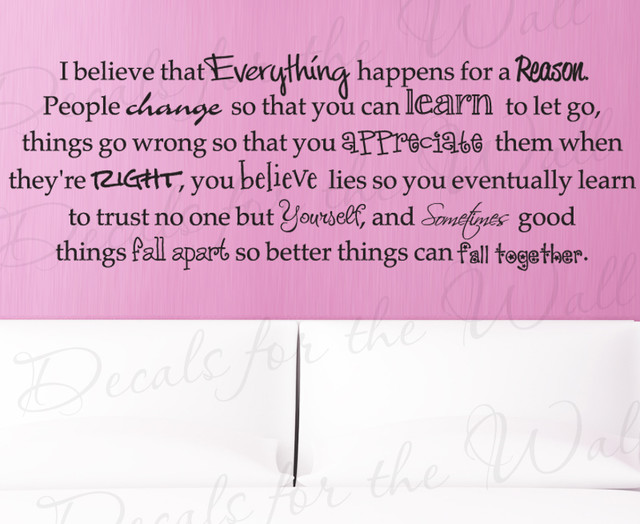 I believe that Everything happens for a Reason.
People change so that you can learn to let go,
things go wrong so that you appreciate them when
they're RIGHT, you believe lies so you eventually learn
to trust no one but Yourself, and Sometimes good
things fall apart so better things can fall together.
Decals for the Wall
Decals for the Wall
Decals for the Wall